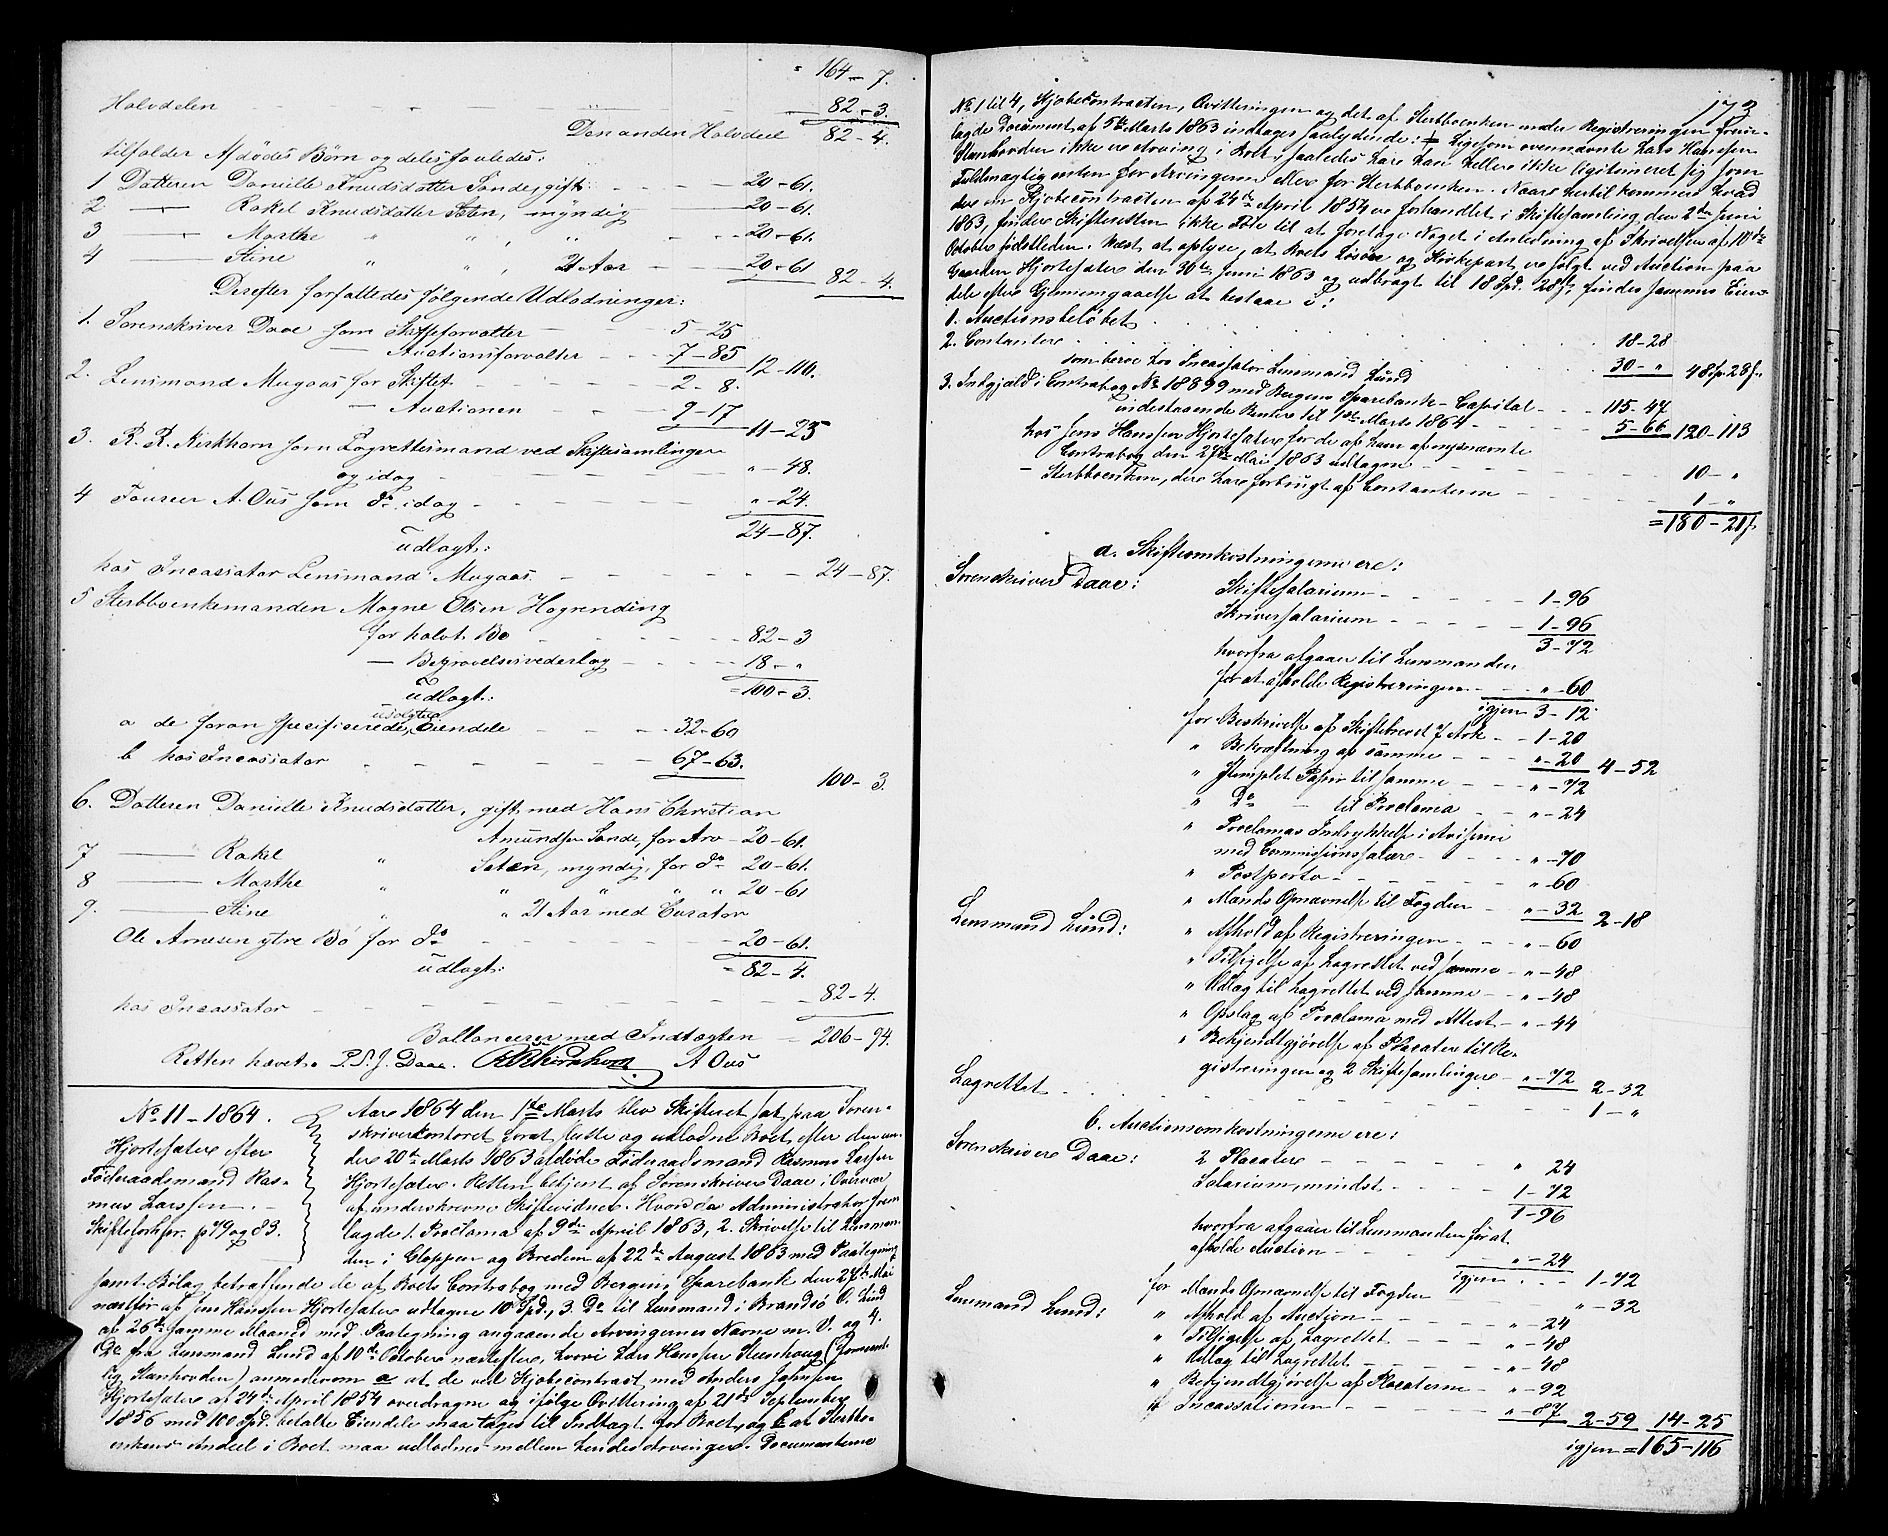 " 164 - 7.
Halvdelen - - - - " - - 82 - 3.
Den anden Halvdeel 82 - 4.
tilfalder Afdødes Børn og deles saaledes:
1 Datteren Danielle Knudsdatter Sande, gift - - - 20 - 61.
2 — Rakel Knudsdatter Sæten, myndig - - - 20 - 61.
3 — Marthe " " , " - - - 20 - 61.
4 — Stine " " , 21 Aar - - - 20 - 61 82 - 4.
Derefter forfattedes følgende Udlodninger:
1. Sorenskriver Daae som Skifteforvalter - - 5 - 25
— Auctionsforvalter - - - 7 - 85 12 - 110.
2. Lensmand Mugaas for Skiftet - - - 2 - 8.
— Auctionen - - - 9 - 17 11 - 25
3. R. R. Kirkhorn som Lagrettesmand ved Skiftesamlingen
og idag - - - " - 48.
4 Foureer A. Ous som do idag - - - " - 24.
24 - 87.
udlagt:
hos Incassator Lensmand Mugaas. - - - 24 - 87.
5 Sterbboenkemanden Mogne Olsen Hogrending
for halvt Bo - - - 82 - 3
— Begravelsesvederlag - - - 18 - "
= 100 - 3.
udlagt:
a de foran specificerede udlagte Eiendele - - - 32 - 60
b hos Incassator - - - 67 - 63. 100 - 3.
6. Datteren Danielle Knudsdatter, gift med Hans Christian
Amundsen Sande, for Arv - 20 - 61.
7 — Rakel " Sæten, myndig, for do 20 - 61.
8 — Marthe " " " " " 20 - 61
9. — Stine " " 21 Aar med Curator
Ole Arnesen ytre Bø for do - - - 20 - 61.
= 82 - 4.
udlagt:
hos Incassator - - - 82 - 4.
Ballancerer med Indtægten - 206 - 94.
Retten hævet. P.S.J. Daae. RRKirkhorn A Ous
No 11 - 1864.
Hjortesæter efter
Føderaadsmand Ras-
mus Larssen. -
Skifteforh pr. p 79 og 83.
Aar 1864 den 1ste Marts blev Skifteret sat paa Soren-
skriverkontoret forat slutte og udlodne Boet efter den un-
der 20de Marts 1863 afdøde Føderaadsmand Rasmus Larssen
Hjortesæter. Retten betjent af Sorenskriver Daae i Overvær
af underskrevne Skiftevidner. Hvorda Administrator frem-
lagde 1. Proclama af 9de April 1863, 2. Skrivelse til Lensman-
den i Gloppen og Bredem af 22de August 1863 med Paategning
samt Bilag betræffende de af Boets Contrabog med Bergens Sparebank den 27de Mai
næstfør af Jens Hanssen Hjortesæter udtagne 10 Spd., 3. Do til Lensmand i Brandsø O. Lund
af 26de samme Maaned med Paategning angaaende Arvingernes Navne m. V. og 4.
Do fra Lensmand Lund af 10de October næstefter, hvori Lars Hanssen
) anmoder om a at de ved Kjøbecontract med Anders Johnsen
Hjortesæter af 24de April 1854 overdragne og ifølge Qvittering af 21de September
1856 med 100 Spd. betalte Eiendele maa tages til Indtægt for Boet, og b at Sterbbo-
enkens Andeel i Boet maa udlodnes mellem hendes Arvinger. Documenterne
173
No 1 til 4, Kjøbecontracten, Qvitteringen og det af Sterbboenken under Registreringen frem-
lagde Document af 5te Marts 1863 indtages saalydende: Ligesom ovennævnte Lars Hanssen
ikke er Arving i Boet, saaledes har han heller ikke legitimeret sig som
Fuldmægtig enten for Arvingerne eller for Sterbboenken. Naar hertil kommer hvad
der om Kjøbecontracten af 24de April 1854 er forhandlet i Skiftesamling den 2den Juni
1863, finder Skifteretten ikke Føie til at foretage Noget i Anledning af Skrivelsen af 10de
October sidstleden. Næst at oplyse, at Boets Løsøre og Kirkepart er solgt ved Auction paa
Gaarden Hjortesæter den 30te Juni 1863 og udbragt til 18 Spd. 28 s, findes sammes Eien-
dele efter Gjennemgaaelse at bestaae i:
1. Auctionsbeløbet - - - 18 - 28
2. Contanter - - - 30 - " 48 Sp. 28 s.
som beroe hos Incassator Lensmand Lund
3. Indgjæld i Contrabog No 18899 med Bergens Sparebank - Capital - - - 115 - 47
indestaaende Renter til 1ste Marts 1864 - - - 5 - 66 120 - 113
hos Jens Hanssen Hjortesæter for de af ham af nysnævnte
Contrabog den 27de Mai 1863 udtagen - - - 10 - "
— Sterbboenken, der har forbrugt af Contanterne - - - 1 - "
= 180 - 21 s.
a. Skifteomkostningerne ere:
Sorenskriver Daae: Skiftesalarium - - - 1 - 96
Skriversalarium - - - 1 - 96
3 - 72
hvorfra afgaaer til Lensmanden
for at afholde Registreringen - - - " - 60
igjen 3 - 12
for Beskrivelse af Skiftebrevet 7 Ark - - 1 - 20
" Bekræftning af samme - - - " - 20 4 - 52
" Stemplet Papir til samme - - - " - 72
" Do - til Proclama - - " - 24
" Proclamas Indrykkelse i Aviserne
med Commissionssalær - - - " - 70
" Postporto - - - " - 60
" Mands Opnævnelse til Fogden - - " - 32 2 - 18
Lensmand Lund: " Afhold af Registreringen - - - " - 60
" Tilsigelse af Lagrettet ved samme - " - 48
" Udlæg til Lagrettet ved samme - - " - 48
" Opslag af Proclama med Attest - " - 44
" Bekjendtgjørelse af Placater til Re-
gistreringen og 2 Skiftesamlinger - " - 72 2 - 32
Lagrettet - - - 1 - "
b. Auctionsomkostningerne ere:
Sorenskriver Daae: 2 Placater - - - " 24
Salarium, mindst - - - 1 - 72
1 - 96
hvorfra afgaaer til Lensmanden for at
afholde Auction - - - " - 24
igjen - - 1 - 72
for Mands Opnævnelse til Fogden " - 32
Lensmand Lund: " Afhold af Auction - - - " - 24
" Tilsigelse af Lagrettet - - - " - 48
" Udlæg til Lagrettet - - - " - 48
" Bekjendtgjørelse af Placaterne - - " - 92
" Incassationen - - - " - 87 2 - 59 14 - 25
igjen = 165 - 116